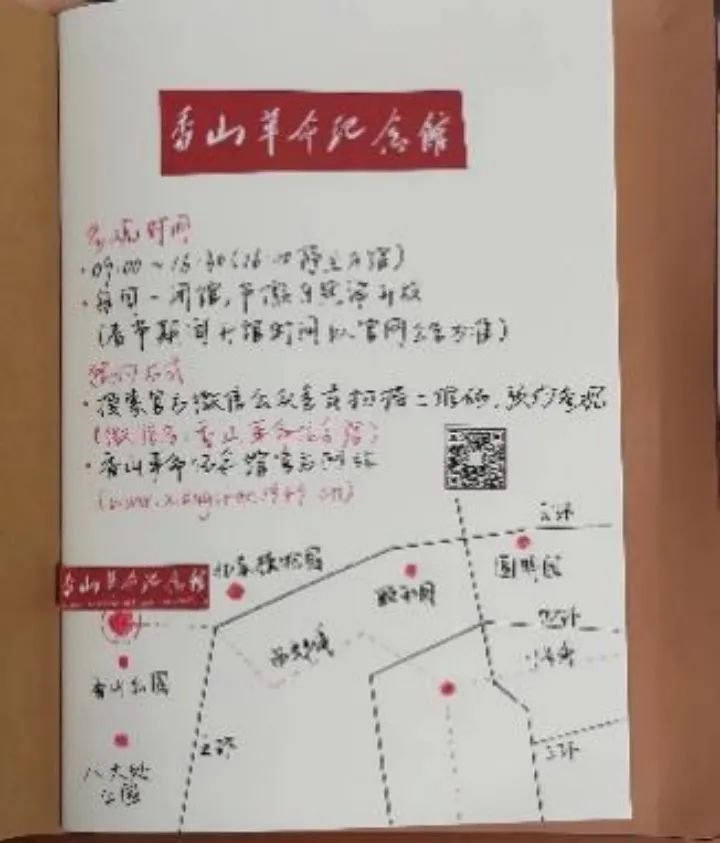 香山革命纪念馆
参观时间
·09:00~16:30(16:00停止入馆)
·每周一闭馆,节假日照常开放
(春节期间开馆时间以官网公告为准)
预约方式
·搜索官方微信公众号或扫描二维码,预约参观
(微信名:香山革命纪念馆)
·香山革命纪念馆官方网站
五环
圆明园
北京植物园
颐和园
香山革命纪念馆
四环
香山公园
五环
三环
八大处
公园